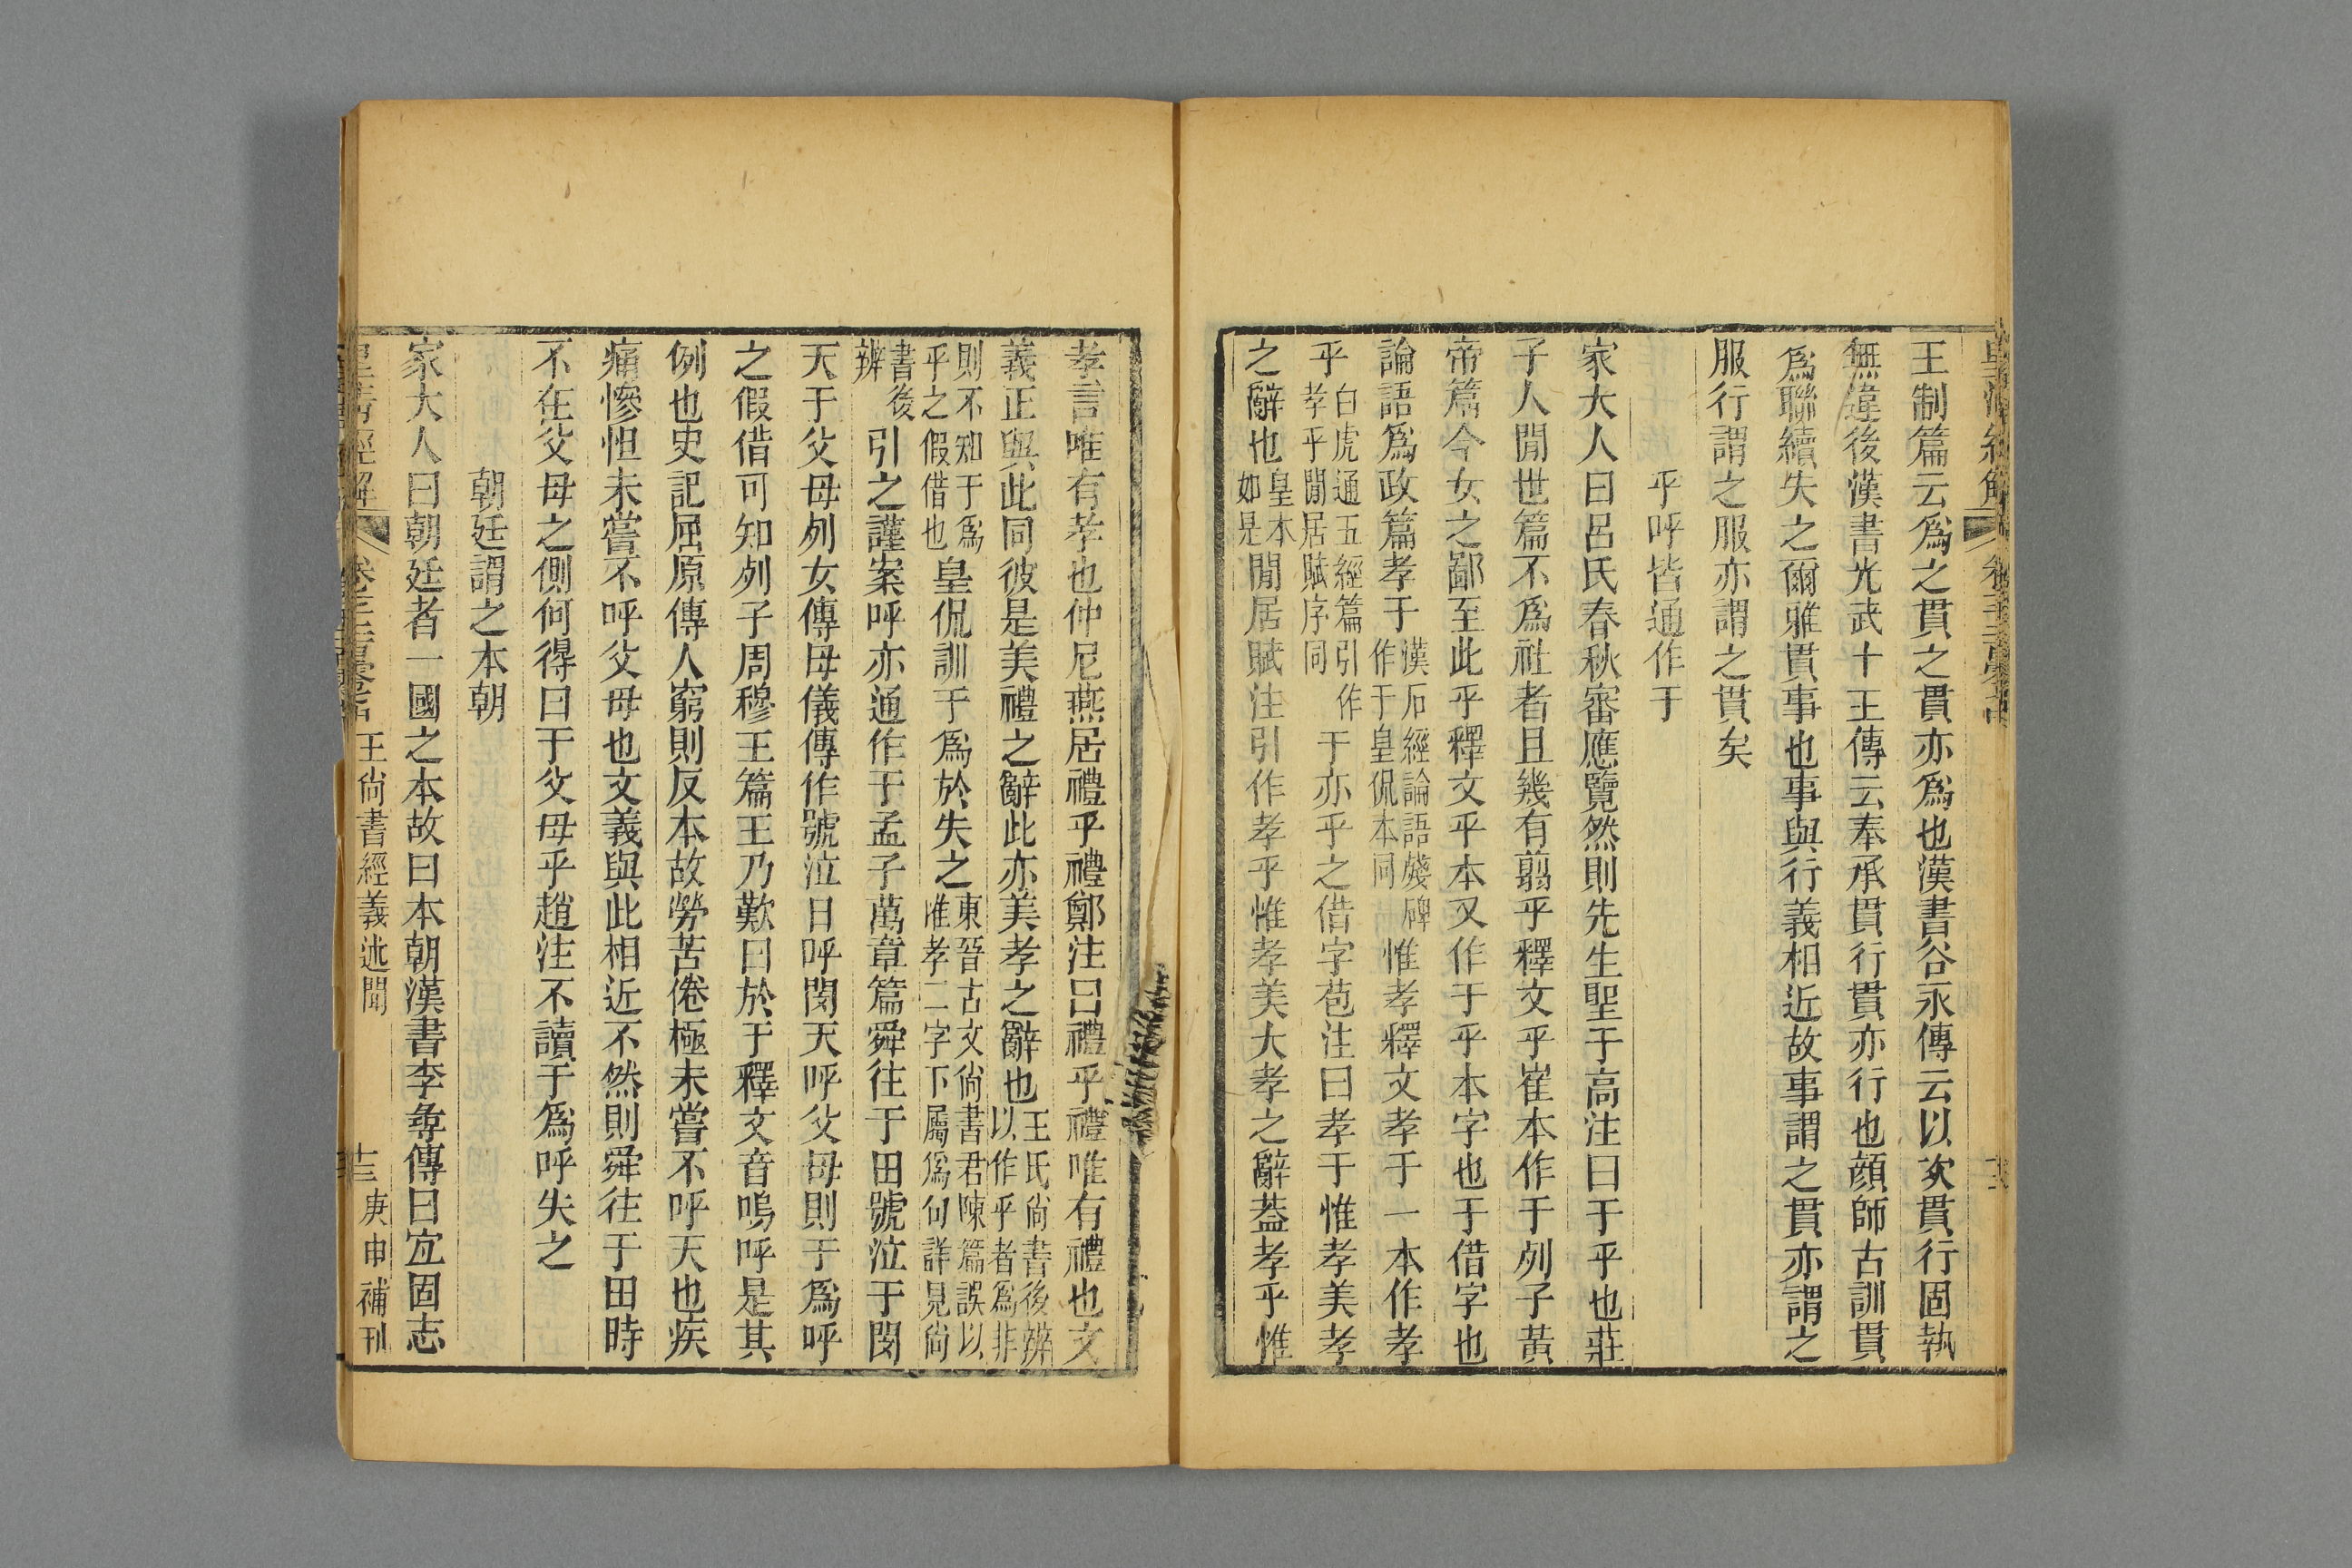 王制篇云爲之貫之貫亦爲也漢書谷永傳云以次貫行固執
無違後漢書光武十王傳云奉承貫行貫亦行也顏師古訓貫
爲聯續失之爾雅貫事也事與行義相近故事謂之貫亦謂之
服行謂之服亦謂之貫矣
乎呼皆通作于
家大人曰呂氏春秋審應覽然則先生聖于高注曰于乎也莊
子人閒世篇不爲社者且幾有翦乎釋文乎崔本作于列子黃
帝篇今女之鄙至此乎釋文乎本又作于乎本字也于借字也
論語爲政篇孝于漢石經論語殘碑作于皇侃本同惟孝釋文孝于一本作孝
乎白虎通五經篇引作孝乎閒居賦序同于亦乎之借字苞注曰孝于惟孝美孝
之辭也皇本如是閒居賦注引作孝乎惟孝美大孝之辭葢孝乎惟
孝言唯有孝也仲尼燕居禮乎禮鄭注曰禮乎禮唯有禮也文
義正與此同彼是美禮之辭此亦美孝之辭也王氏尙書後辨以作乎者爲非
則不知于爲乎之假借也皇侃訓于爲於失之東晉古文尙書君陳篇誤以惟孝二字下屬爲句詳見尙
書後辨引之謹案呼亦通作于孟子萬章篇舜往于田號泣于旻
天于父母列女傳母儀傳作號泣日呼旻天呼父母則于爲呼
之假借可知列子周穆王篇王乃歎曰於于釋文音嗚呼是其
例也史記屈原傳人窮則反本故勞苦倦極未嘗不呼天也疾
痛慘怛未嘗不呼父母也文義與此相近不然則舜往于田時
不在父母之側何得曰于父母乎趙注不讀于爲呼失之
朝廷謂之本朝
家大人曰朝廷者一國之本故曰本朝漢書李尋傳曰宜固志
皇淸經解 王尙書經義述聞 庚申補刊